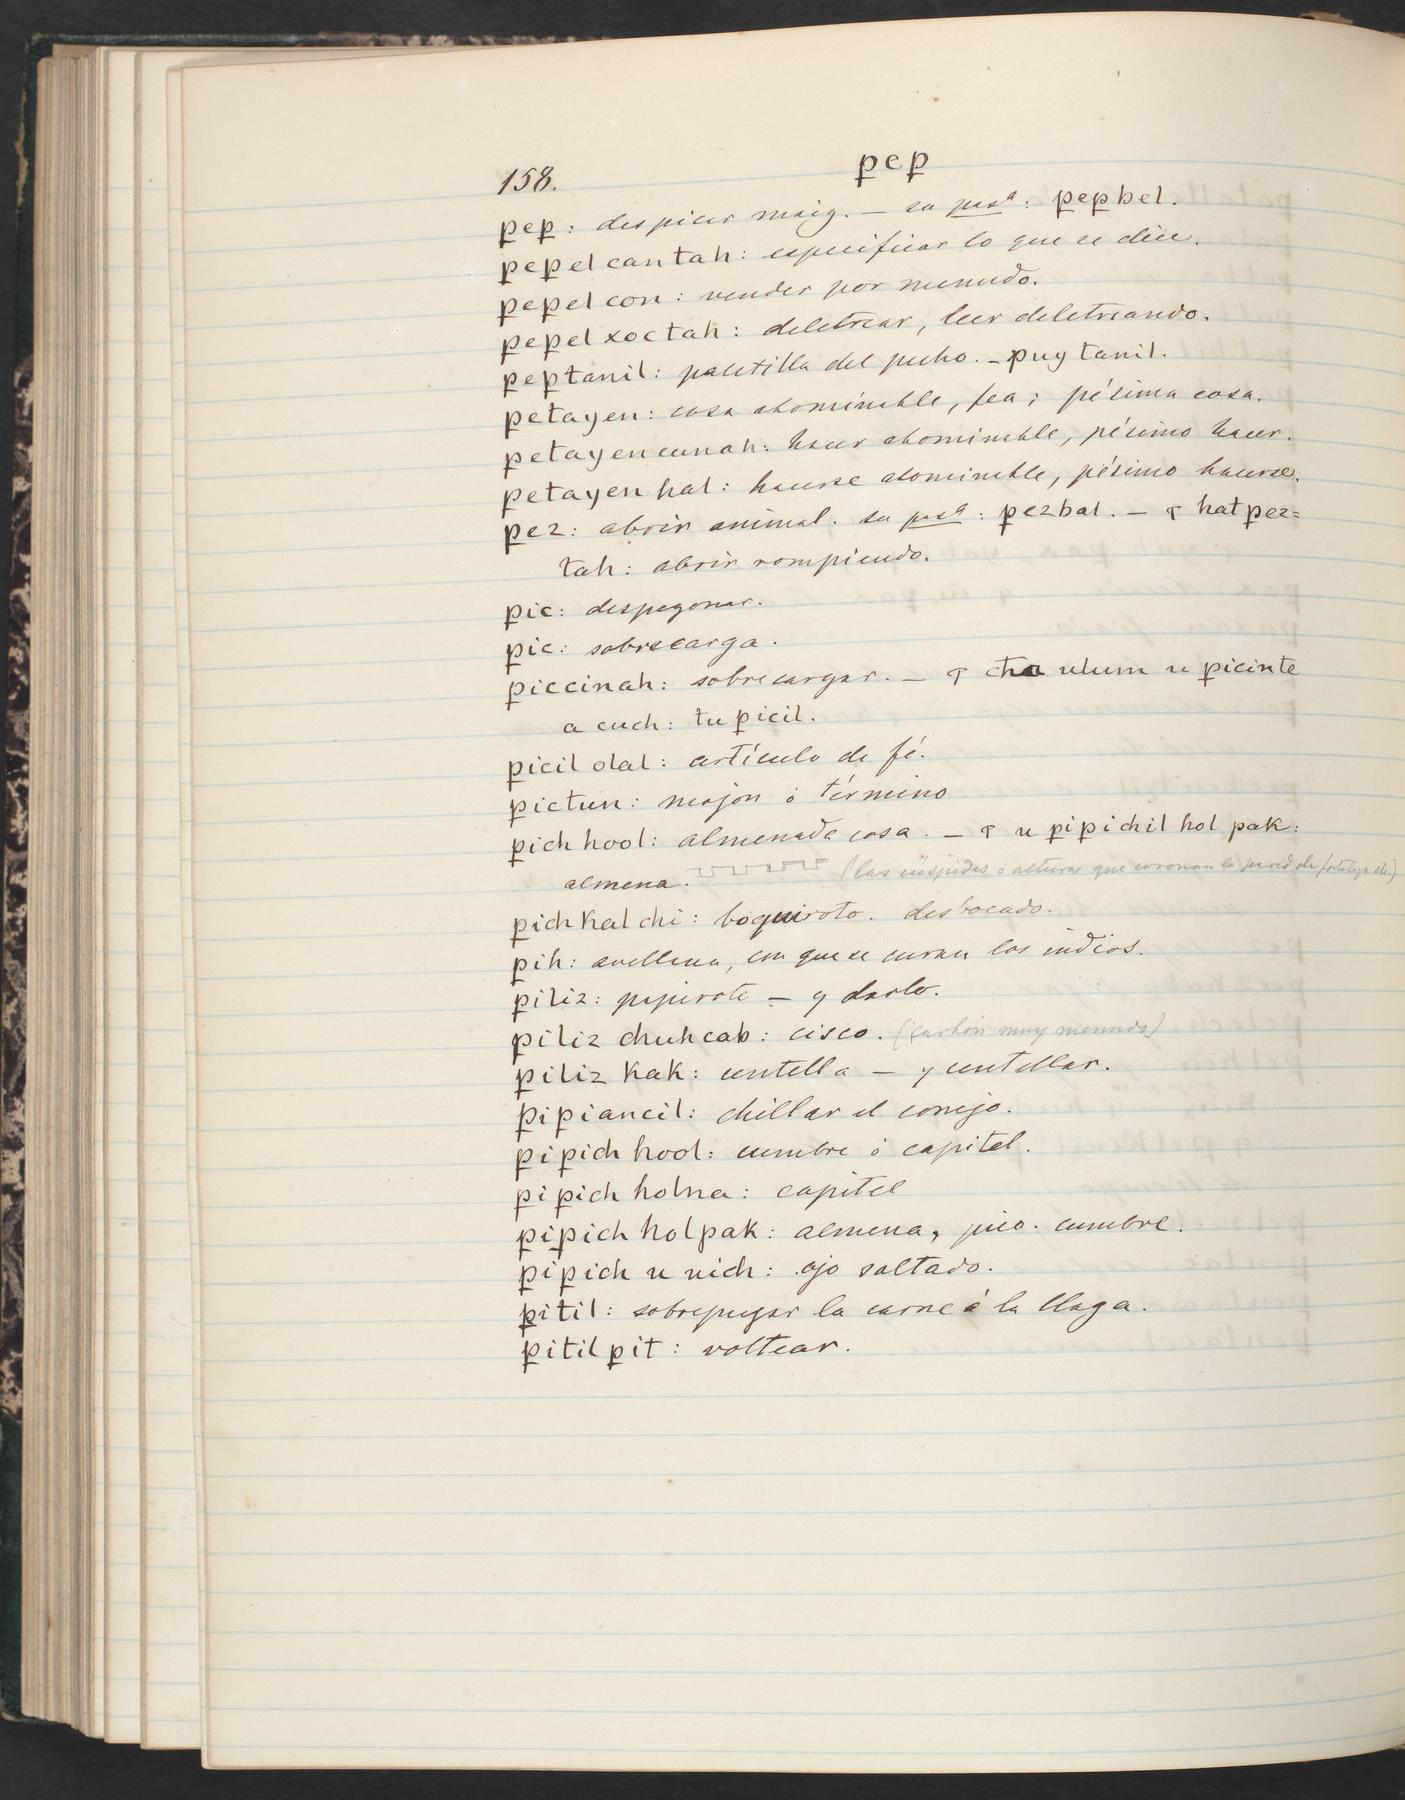 158. ꝑeꝑ
ꝑeꝑ: despicar maiz. — su pasª: ꝑeꝑbel.
ꝑeꝑel cantah: especificar lo que se dice.
ꝑeꝑel con: vender por menudo.
ꝑeꝑel xoctah: deletrear, leer deletreando.
ꝑeꝑtanil: paletilla del pecho. — ꝑuy tanil.
ꝑetayen: cosa abominable, fea; pésima cosa.
ꝑetayencunah: hacer abominable, pésimo hacer.
ꝑetayen hal: hacerse abominable, pésimo hacerse.
ꝑez: abrir animal. su pasª: ꝑezbal. — ꝯ hatꝑez=
tah: abrir rompiendo.
ꝑic: despegonar.
ꝑic: sobrecarga.
ꝑiccinah: sobrecargar. — ꝯ cha ulum u ꝑicinte
a cuch: tu ꝑicil.
ꝑicil olal: artículo de fé.
ꝑictun: mojon ó término
ꝑich hool: almenada cosa. — ꝯ u ꝑiꝑichil hol pak:
almena. (las cúspides ó alturas que coronan la pared de fortaleza etc.)
ꝑich kal chi: boquiroto. desbocado.
ꝑih: avellana, con que se curan los indios.
ꝑiliz: papirote — y darlo.
ꝑiliz chuhcab: cisco. (carbón muy menudo)
ꝑiliz kak: centella — y centellar.
ꝑiꝑiancil: chillar el conejo.
ꝑiꝑich hool: cumbre ó capitel.
ꝑiꝑich holna: capitel
ꝑiꝑich holpak: almena, pico. cumbre.
ꝑiꝑich u uich: ojo saltado.
ꝑitil: sobrepujar la carne á la llaga.
ꝑitilꝑit: voltear.